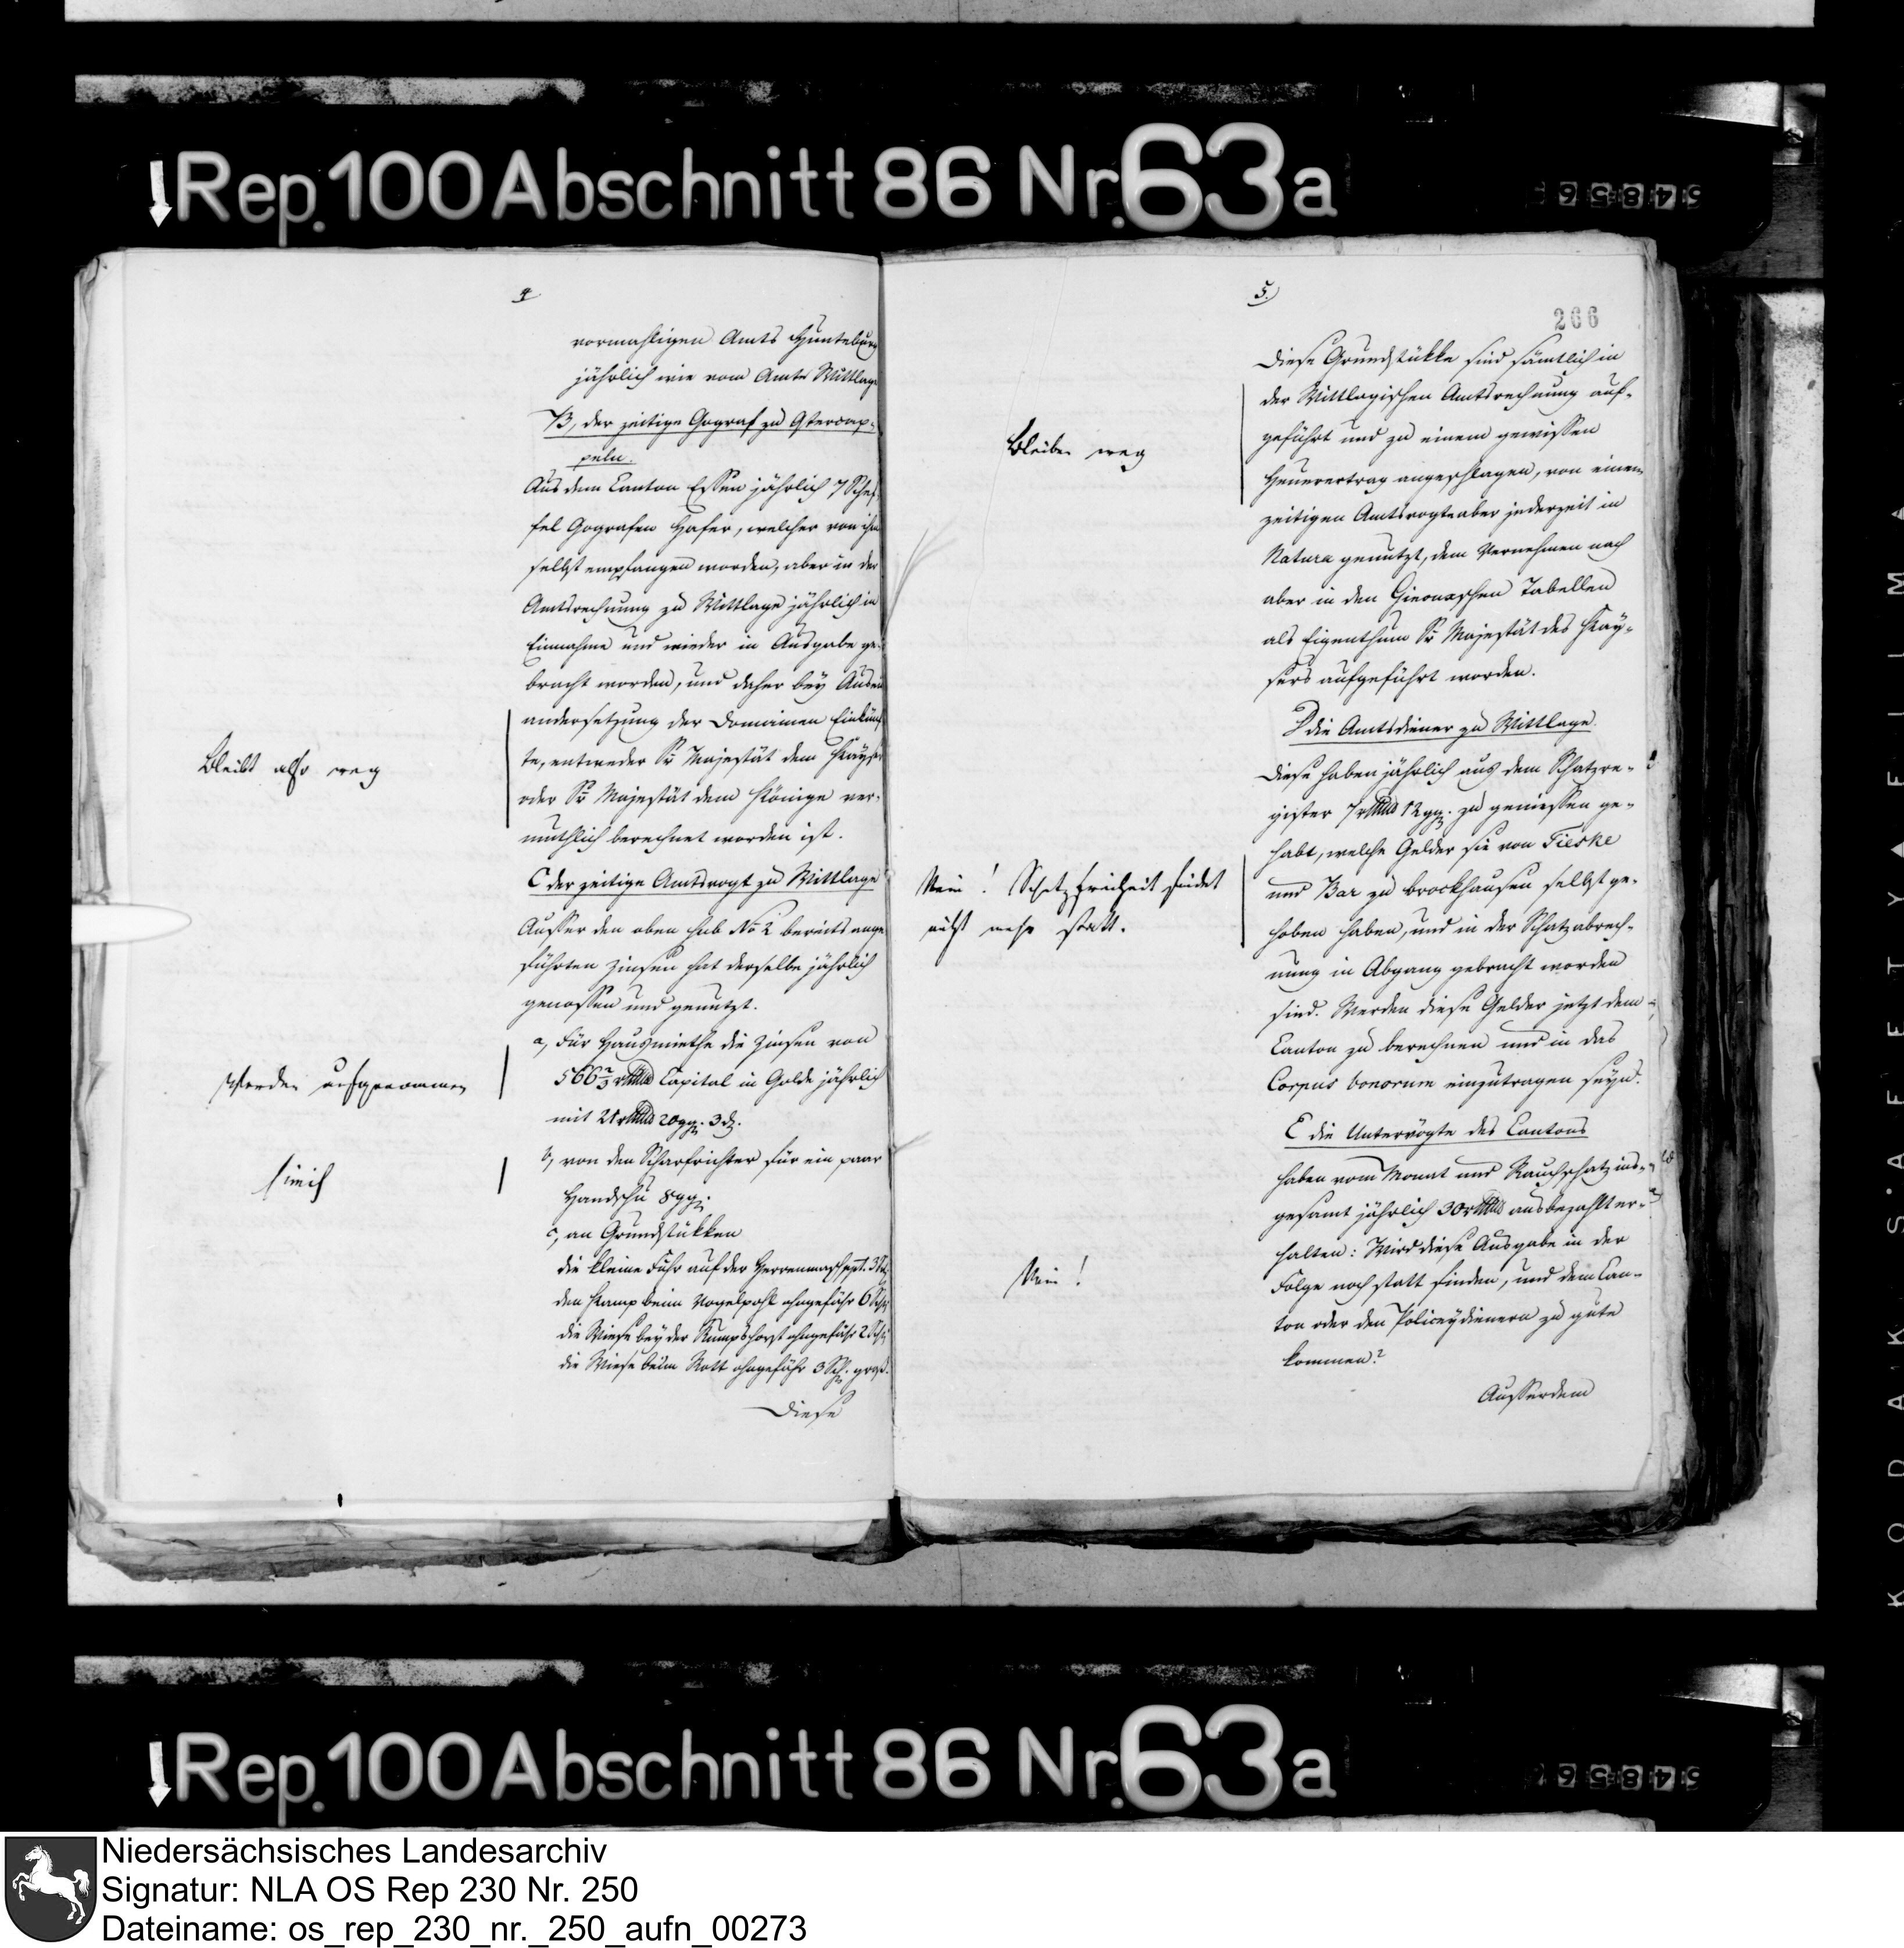 Rep. 100 Abschnitt 86 Nr. 63a
54856
4
vormahligen Amts Hunteburg
jährlich wie vom Amte Wittlage
B, der zeitige Gograf zu Ostercap-
peln.
Aus dem Canton Essen jährlich 7 Schef-
fel Gografen Hafer, welcher von ihm
selbst empfangen worden, aber in der
Amtsrechnung zu Wittlage jährlich in
Einnahme und wieder in Ausgabe ge-
bracht worden, und daher bey Ausein
andersetzung der Domainen Einkünf
te, entweder Sr Majestät dem Kayser
oder Sr Majestät dem Könige ver-
muthlich berechnet worden ist.
Bleibt also weg
C der zeitige Amtsvogt zu Wittlage
Ausser den oben sub No 2 bereits ange
führten Zinsen hat derselbe jährlich
genossen und genutzt.
a, Für Hausmiethe die Zinsen von
566 2/3 rthlr Capital in Golde jährlich
mit 21 rthlr 20 ggr. 3 d.
Werden aufgenommen
b, von den Scharfrichter für ein paar
Handschu 8 ggr.
c, an Grundstükken
die kleine Fuhr auf der Herrenmasch
den Kamp beim Vogelpohl ohngefähr 6 Sch
die Wiese bey der Rumpshorst ohngefähr 2 Sch
die Wiese beim Rott ohngefähr 3 Sch. groß.
Diese
5.
266
Diese Grundstükke sind sämtlich in
der Wittlagischen Amtsrechnung auf-
geführt und zu einem gewissen
Heuerertrag angeschlagen, von einem
zeitigen Amtsvogte aber jederzeit in
Natura genutzt, dem Vernehmen nach
aber in den Tabellen
als Eigenthum Sr Majestät des Kay-
sers aufgeführt worden.
Bleiben weg
D die Amtsdiener zu Wittlage.
Diese haben jährlich aus dem Schatzre-
gister 7 rthlr 12 ggr. zu geniessen ge-
habt, welche Gelder sie von Tieske
und Bar zu Brockhausen selbst ge-
hoben haben, und in der Schatzabrech-
nung in Abgang gebracht worden
sind. Werden diese Gelder jetzt dem
Canton zu berechnen und in das
Corpus bonorum einzutragen seyn?
Nein! Schatzfreiheit findet
nicht mehr statt.
E die Untervögte des Cantons
haben vom Monat und Rauchschatz ins-
gesamt jährlich 30 rthlr ausbezahlt er-
halten: Wird diese Ausgabe in der
Folge noch statt finden, und dem Can-
ton oder den Policeydienern zu gute
kommen?
Nein!
Ausserdem
Rep. 100 Abschnitt 86 Nr. 63a
54856
KODAK SAFETY FILM
Niedersächsisches Landesarchiv
Signatur: NLA OS Rep 230 Nr. 250
Dateiname: os_rep_230_nr._250_aufn_00273